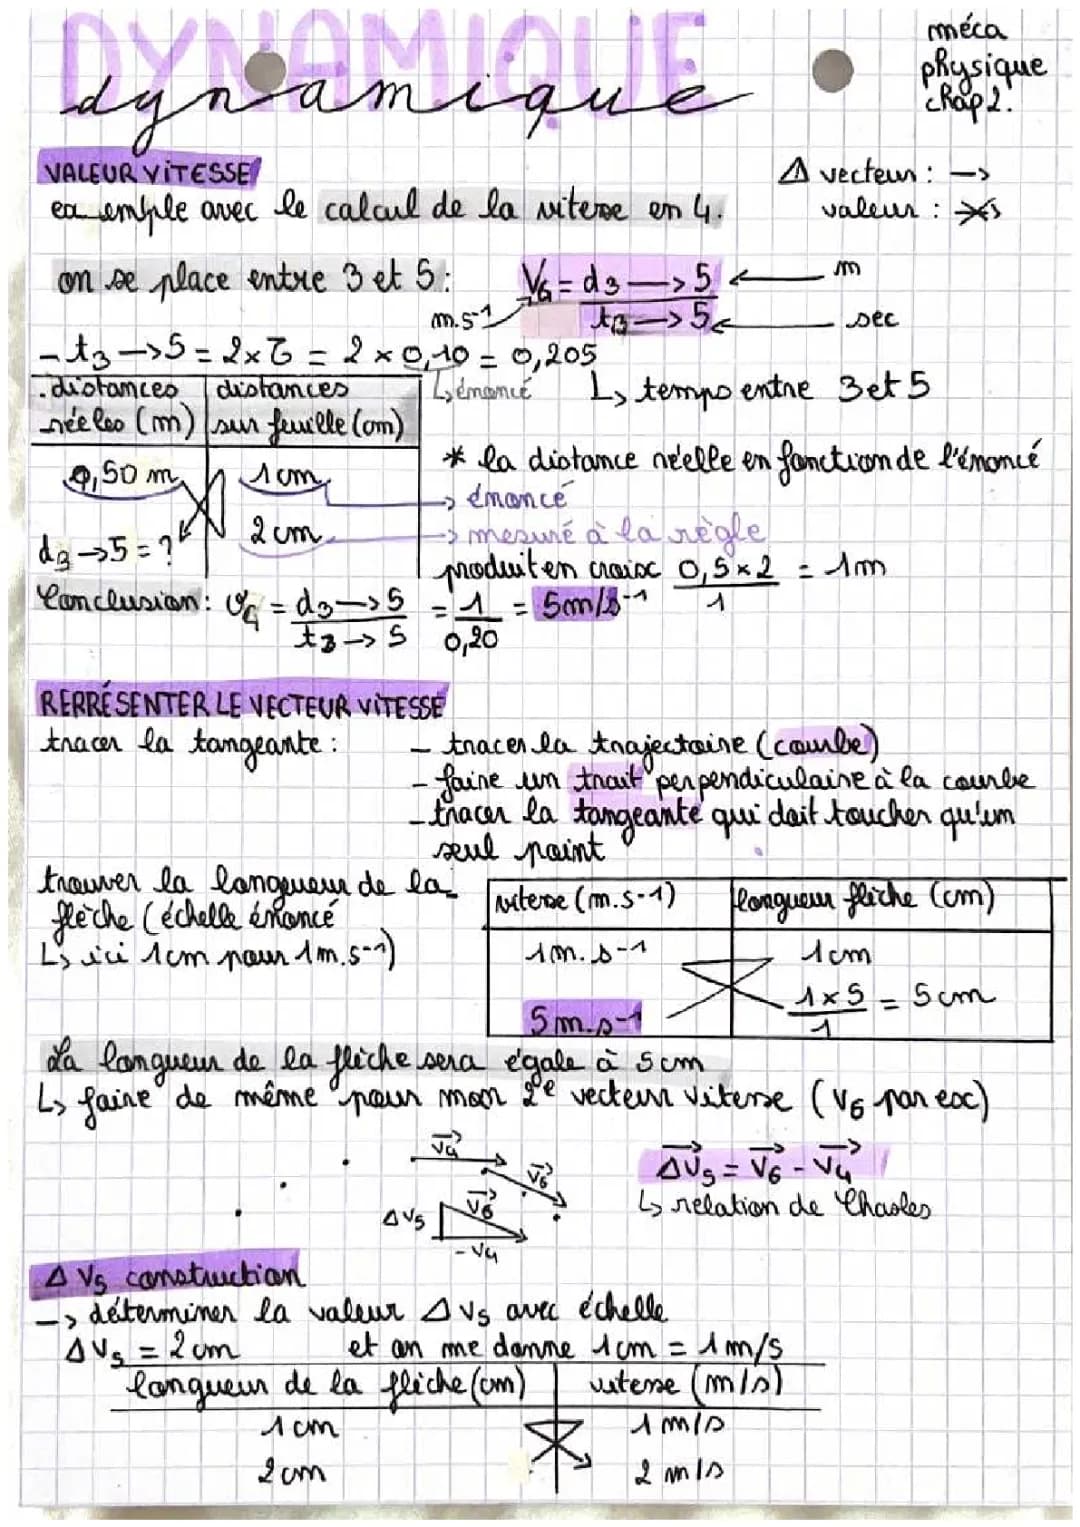 DYNAMIQUE
dynamique
méca
physique
chap 2.
VALEUR VITESSE
exemple avec le calcul de la vitesse en 4.
Δ vecteur : →
valeur :
on se place entre 3 et 5 :
V4 = d3 → 5 / t3 → 5
m
sec
m.s-1
- t3 → 5 = 2 × τ = 2 × 0,10 = 0,20s
↳ énoncé
↳ temps entre 3 et 5
distances réelles (m) | distances sur feuille (cm)
0,50 m | 1 cm
d3 → 5 = ? | 2 cm
* la distance réelle en fonction de l'énoncé
→ énoncé
→ mesuré à la règle
produit en croix 0,5 × 2 / 1 = 1m
Conclusion : v4 = d3 → 5 / t3 → 5 = 1 / 0,20 = 5m/s-1
RERRÉSENTER LE VECTEUR VITESSE
tracer la tangeante :
- tracer la trajectoire (courbe)
- faire un trait perpendiculaire à la courbe
- tracer la tangeante qui doit toucher qu'un
seul point
trouver la longueur de la
flèche (échelle énoncé
↳ ici 1cm pour 1m.s-1)
vitesse (m.s-1) | longueur flèche (cm)
1m.s-1 | 1cm
5m.s-1 | 1×5 / 1 = 5cm
La longueur de la flèche sera égale à 5cm
↳ faire de même pour mon 2e vecteur vitesse (V6 par ex)
V4
V6
ΔV5
V6
-V4
ΔV5 = V6 - V4
↳ relation de Chasles
Δ V5 construction
→ déterminer la valeur Δ V5 avec échelle
ΔV5 = 2cm et on me donne 1cm = 1m/s
longueur de la flèche (cm) | vitesse (m/s)
1 cm | 1 m/s
2 cm | 2 m/s